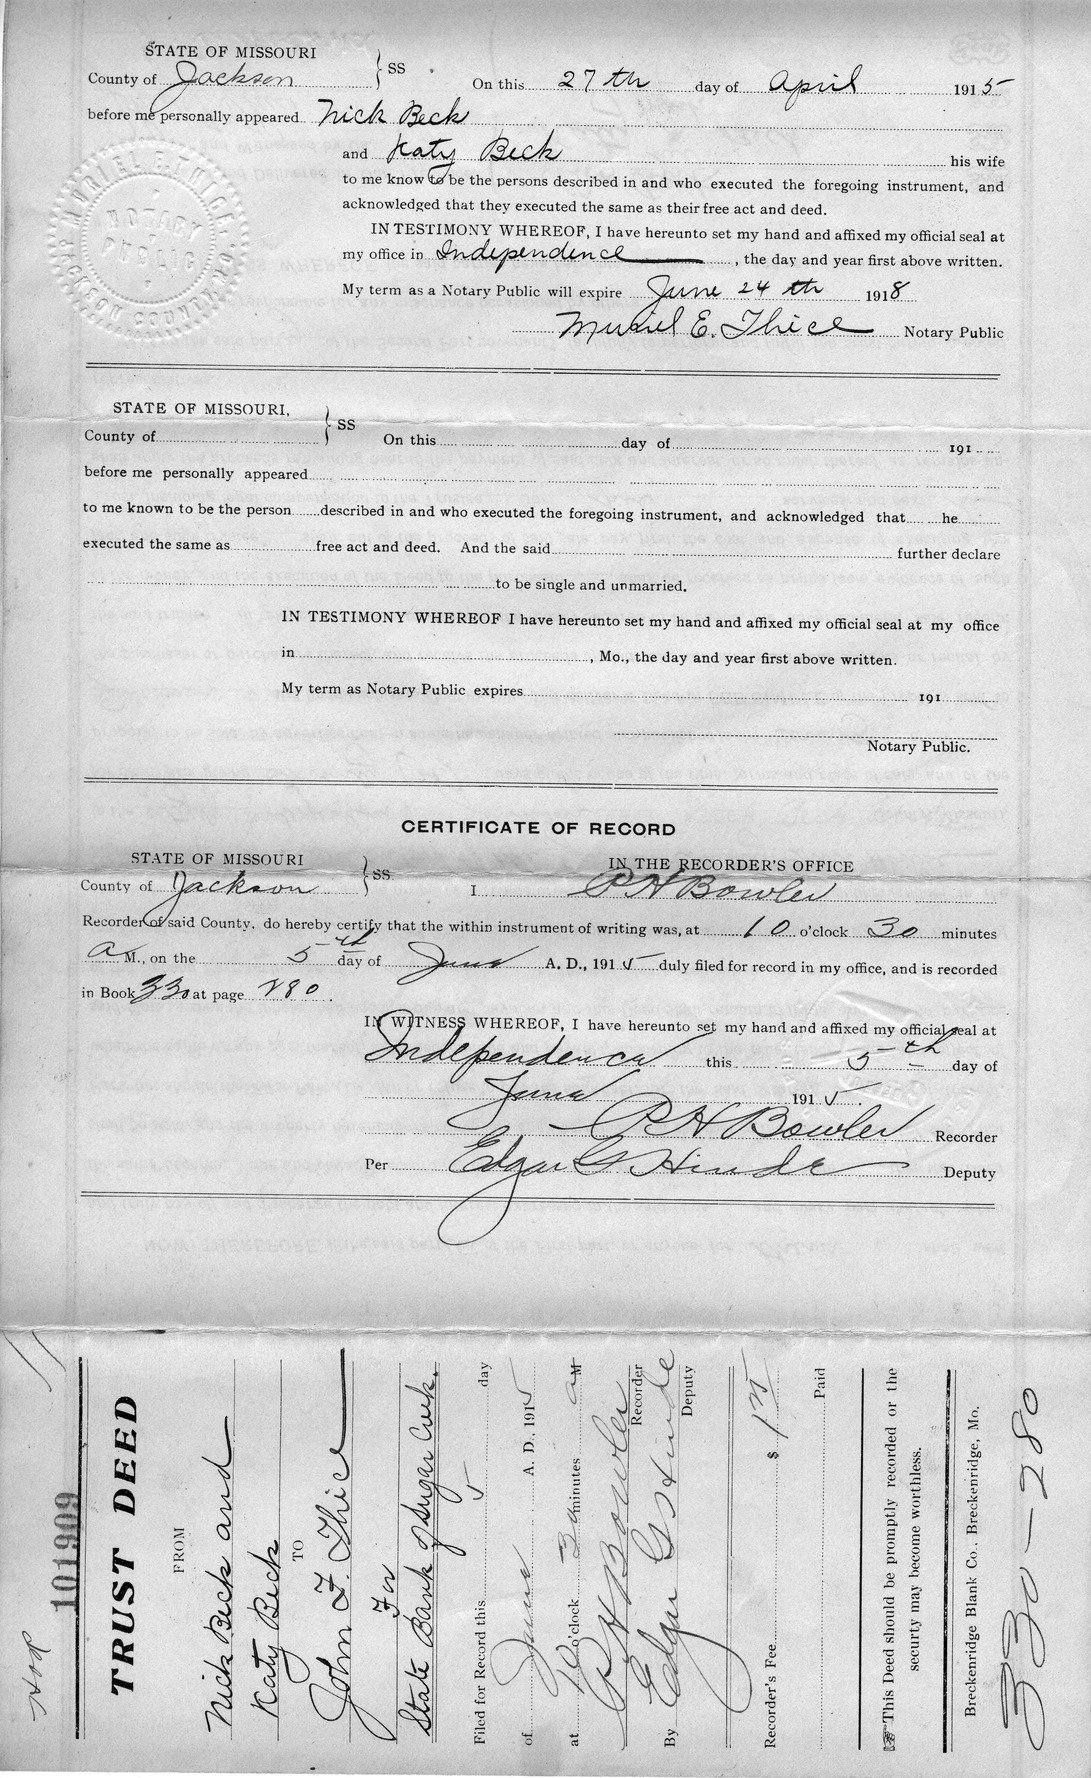 STATE OF MISSOURI
County of Jackson } SS On this 27th day of April 1915
before me personally appeared Nick Beck
and Katy Beck his wife
to me know to be the persons described in and who executed the foregoing instrument, and
acknowledged that they executed the same as their free act and deed.
IN TESTIMONY WHEREOF, I have hereunto set my hand and affixed my official seal at
my office in Independence, the day and year first above written.
My term as a Notary Public will expire June 24th 1918
Muriel E. Thice Notary Public
MURIEL E. THICE
NOTARY PUBLIC
JACKSON COUNTY, MO.
STATE OF MISSOURI,
County of } SS On this day of 191
before me personally appeared
to me known to be the person described in and who executed the foregoing instrument, and acknowledged that he
executed the same as free act and deed. And the said further declare
to be single and unmarried.
IN TESTIMONY WHEREOF I have hereunto set my hand and affixed my official seal at my office
in , Mo., the day and year first above written.
My term as Notary Public expires 191
Notary Public.
CERTIFICATE OF RECORD
STATE OF MISSOURI } SS. IN THE RECORDER'S OFFICE
County of Jackson I P H Bowler
Recorder of said County, do hereby certify that the within instrument of writing was, at 10 o'clock 30 minutes
a M., on the 5th day of June A. D., 1915 duly filed for record in my office, and is recorded
in Book 330 at page 280.
IN WITNESS WHEREOF, I have hereunto set my hand and affixed my official seal at
Independence this 5th day of
June 1915.
P H Bowler Recorder
Per Edgar G Hinde Deputy
101909
TRUST DEED
FROM
Nick Beck and
Katy Beck
TO
John F. Thice
For
State Bank of Sugar Creek.
Filed for Record this 5 day
of June A. D., 1915
at 10 o'clock 30 minutes a M
P H Bowler Recorder
By Edgar G Hinde Deputy
Recorder's Fee $ 1
Paid
This Deed should be promptly recorded or the
securty may become worthless.
Breckenridge Blank Co., Breckenridge, Mo.
330-280